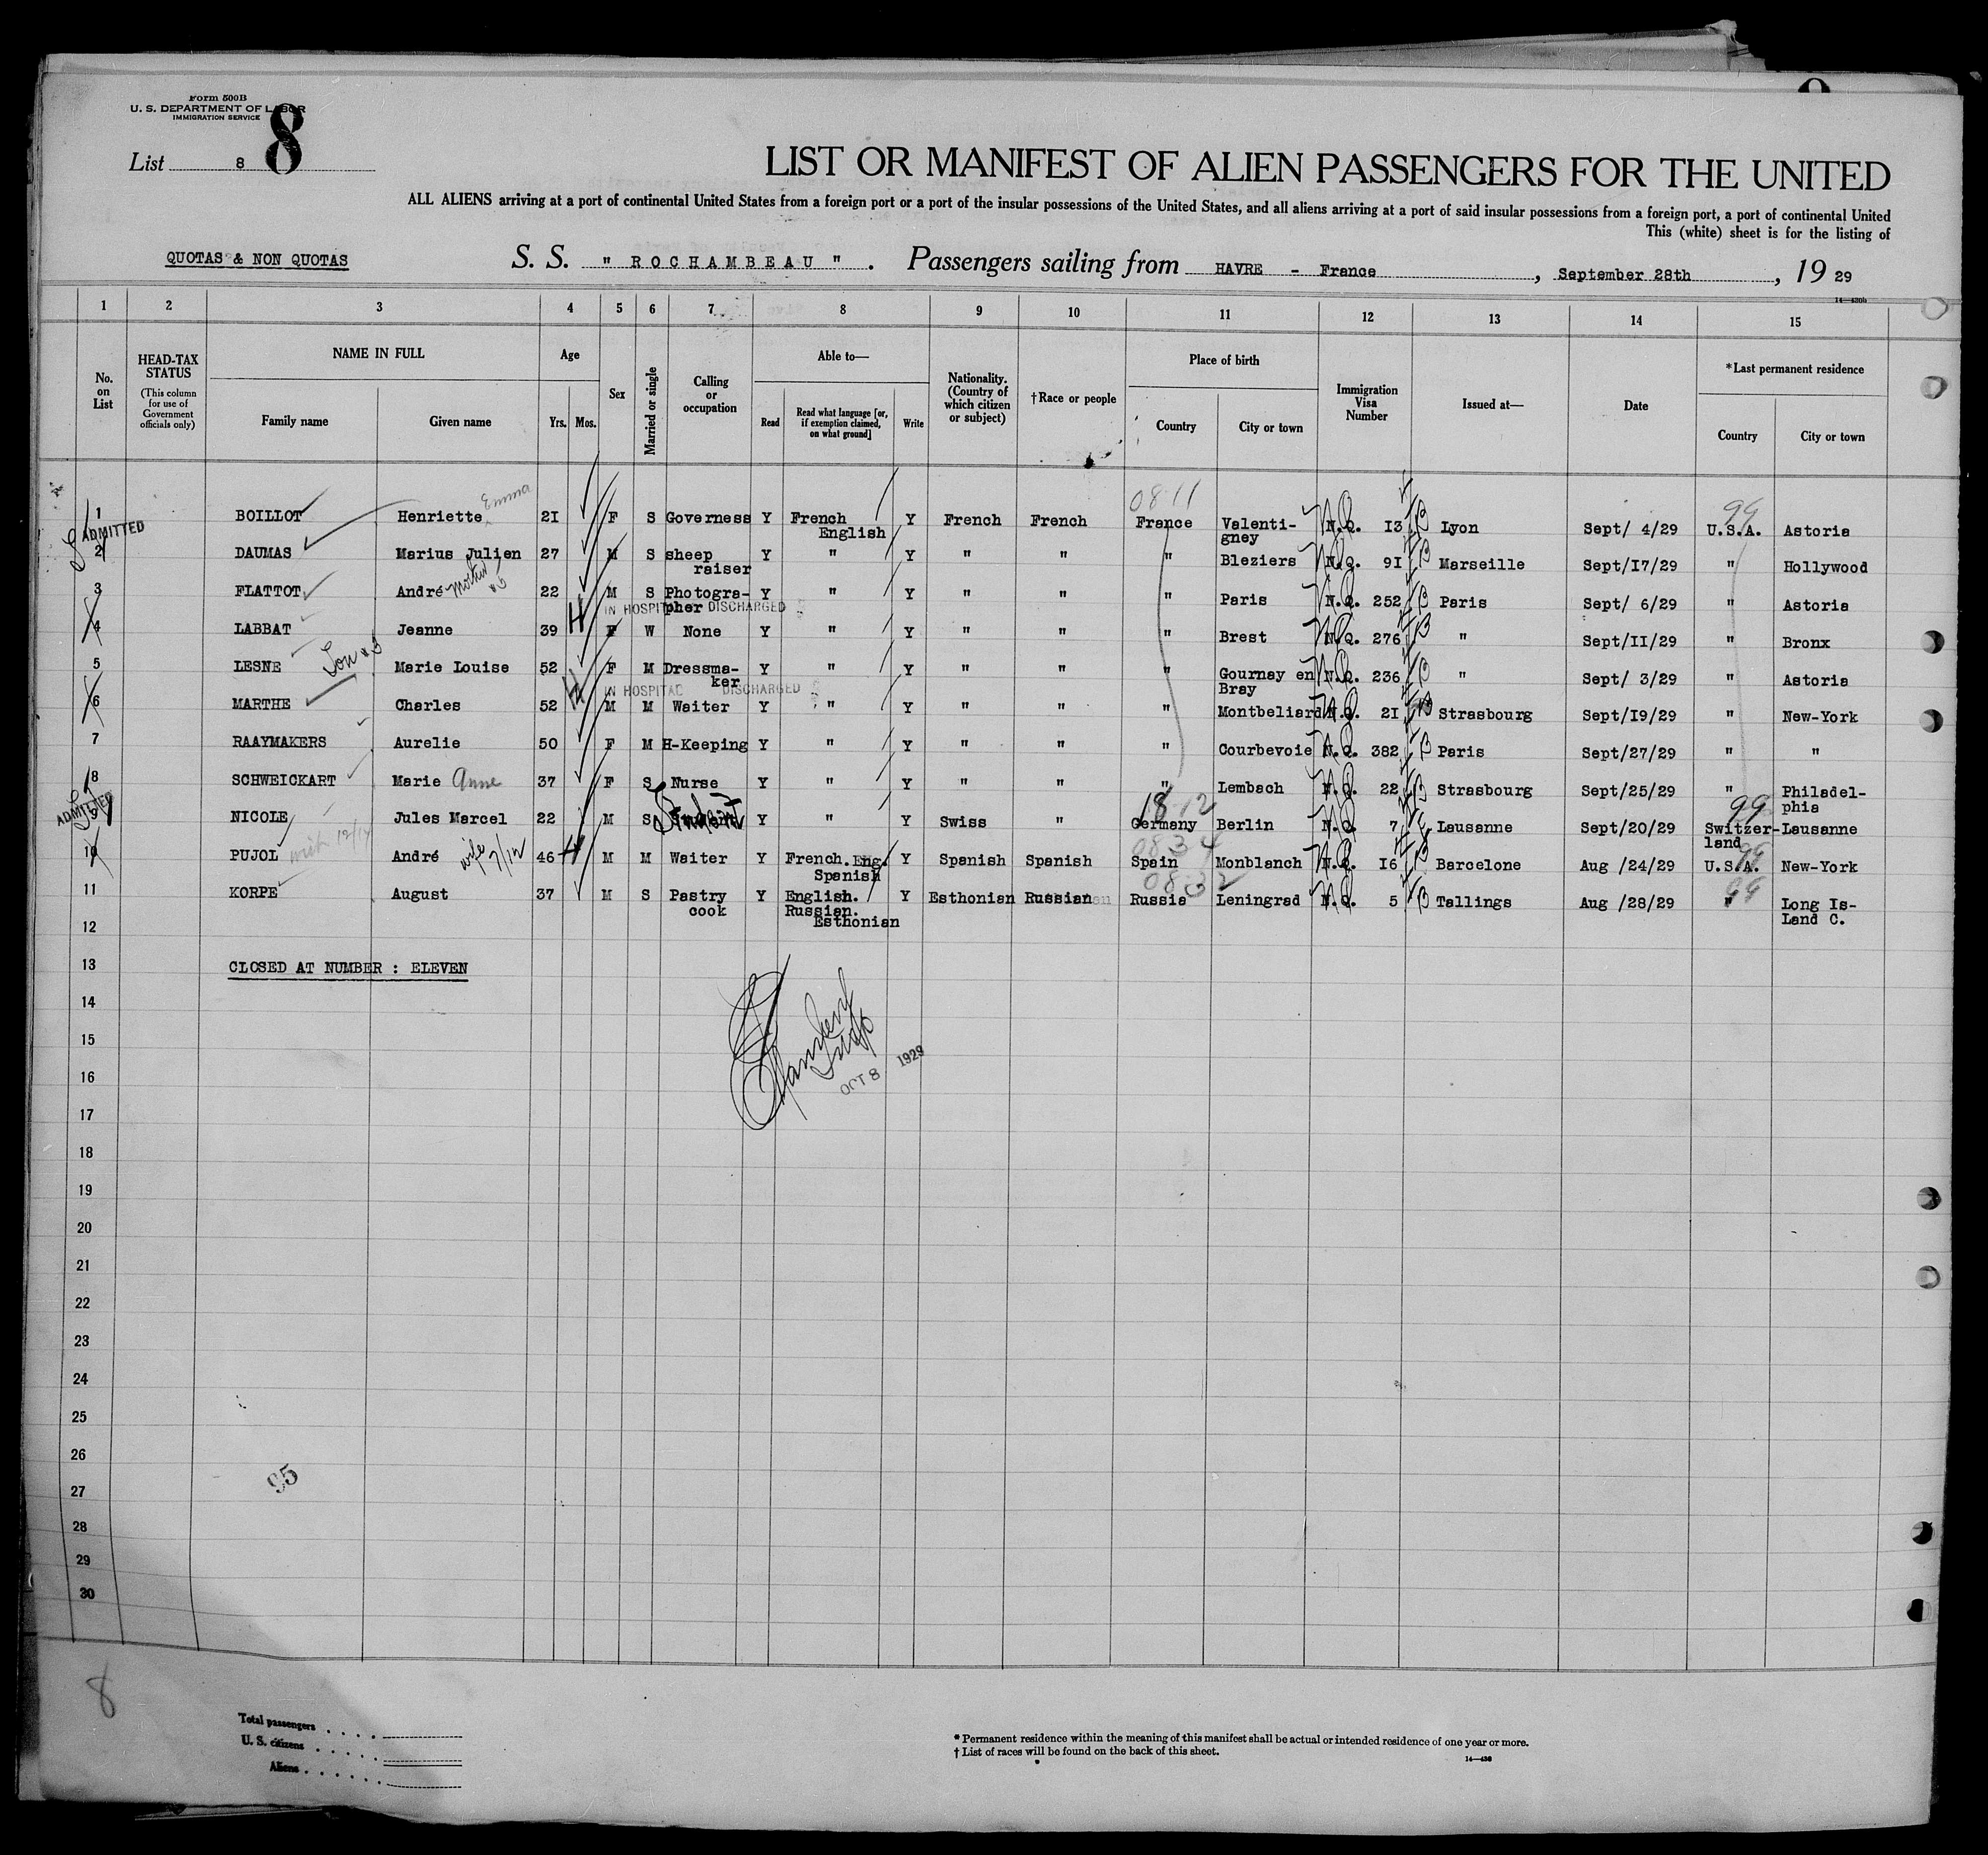 Form 500B
U. S. DEPARTMENT OF LABOR
IMMIGRATION SERVICE
List 8 8
LIST OR MANIFEST OF ALIEN PASSENGERS FOR THE UNITED
ALL ALIENS arriving at a port of continental United States from a foreign port or a port of the insular possessions of the United States, and all aliens arriving at a port of said insular possessions from a foreign port, a port of continental United
This (white) sheet is for the listing of
QUOTAS & NON QUOTAS S. S. " ROCHAMBEAU ". Passengers sailing from HAVRE - France, September 28th, 19 29
14—430b
1 2 3 4 5 6 7 8 9 10 11 12 13 14 15
No. on List
HEAD-TAX STATUS
(This column for use of Government officials only)
NAME IN FULL
Family name Given name
Age
Yrs. Mos.
Sex
Married or single
Calling or occupation
Able to—
Read
Read what language [or, if exemption claimed, on what ground]
Write
Nationality. (Country of which citizen or subject)
†Race or people
Place of birth
Country City or town
Immigration Visa Number
Issued at—
Date
*Last permanent residence
Country City or town
0811 99
1 BOILLOT Henriette Emma 21 F S Governess Y French English Y French French France Valenti-gney N.Q. 13 Lyon Sept/ 4/29 U.S.A. Astoria
ADMITTED
2 DAUMAS Marius Julien 27 M S sheep raiser Y " Y " " " Bleziers N.Q. 91 Marseille Sept/17/29 " Hollywood
3 FLATTOT André mother 22 M S Photogra-pher Y " Y " " " Paris N.Q. 252 Paris Sept/ 6/29 " Astoria
IN HOSPITAL DISCHARGED
4 LABBAT Jeanne 39 H F W None Y " Y " " " Brest N.Q. 276 " Sept/11/29 " Bronx
5 LESNE Son Marie Louise 52 F M Dressma-ker Y " Y " " " Gournay en Bray N.Q. 236 " Sept/ 3/29 " Astoria
IN HOSPITAL DISCHARGED
6 MARTHE Charles 52 H M M Waiter Y " Y " " " Montbeliard N.Q. 21 Strasbourg Sept/19/29 " New-York
7 RAAYMAKERS Aurelie 50 F M H-Keeping Y " Y " " " Courbevoie N.Q. 382 Paris Sept/27/29 " "
8 SCHWEICKART Marie Anne 37 F S Nurse Y " Y " " " Lembach N.Q. 22 Strasbourg Sept/25/29 " Philadel-phia
1812 99
ADMITTED
9 NICOLE Jules Marcel 22 M S Student Y " Y Swiss " Germany Berlin N.Q. 7 Lausanne Sept/20/29 Switzer-land Lausanne
0834 99
10 PUJOL André wife 7/12 46 H M M Waiter Y French. Eng. Spanish Y Spanish Spanish Spain Monblanch N.Q. 16 Barcelone Aug /24/29 U.S.A. New-York
0832 99
11 KORPE August 37 M S Pastry cook Y English. Russian. Esthonian Y Esthonian Russian Russia Leningrad N.Q. 5 Tallings Aug /28/29 " Long Is-Land C.
12
13 CLOSED AT NUMBER : ELEVEN
14
15
OCT 8 1929
16
17
18
19
20
21
22
23
24
25
26
95
27
28
29
30
8
Total passengers
U. S. citizens
Aliens
* Permanent residence within the meaning of this manifest shall be actual or intended residence of one year or more.
† List of races will be found on the back of this sheet.
14—430